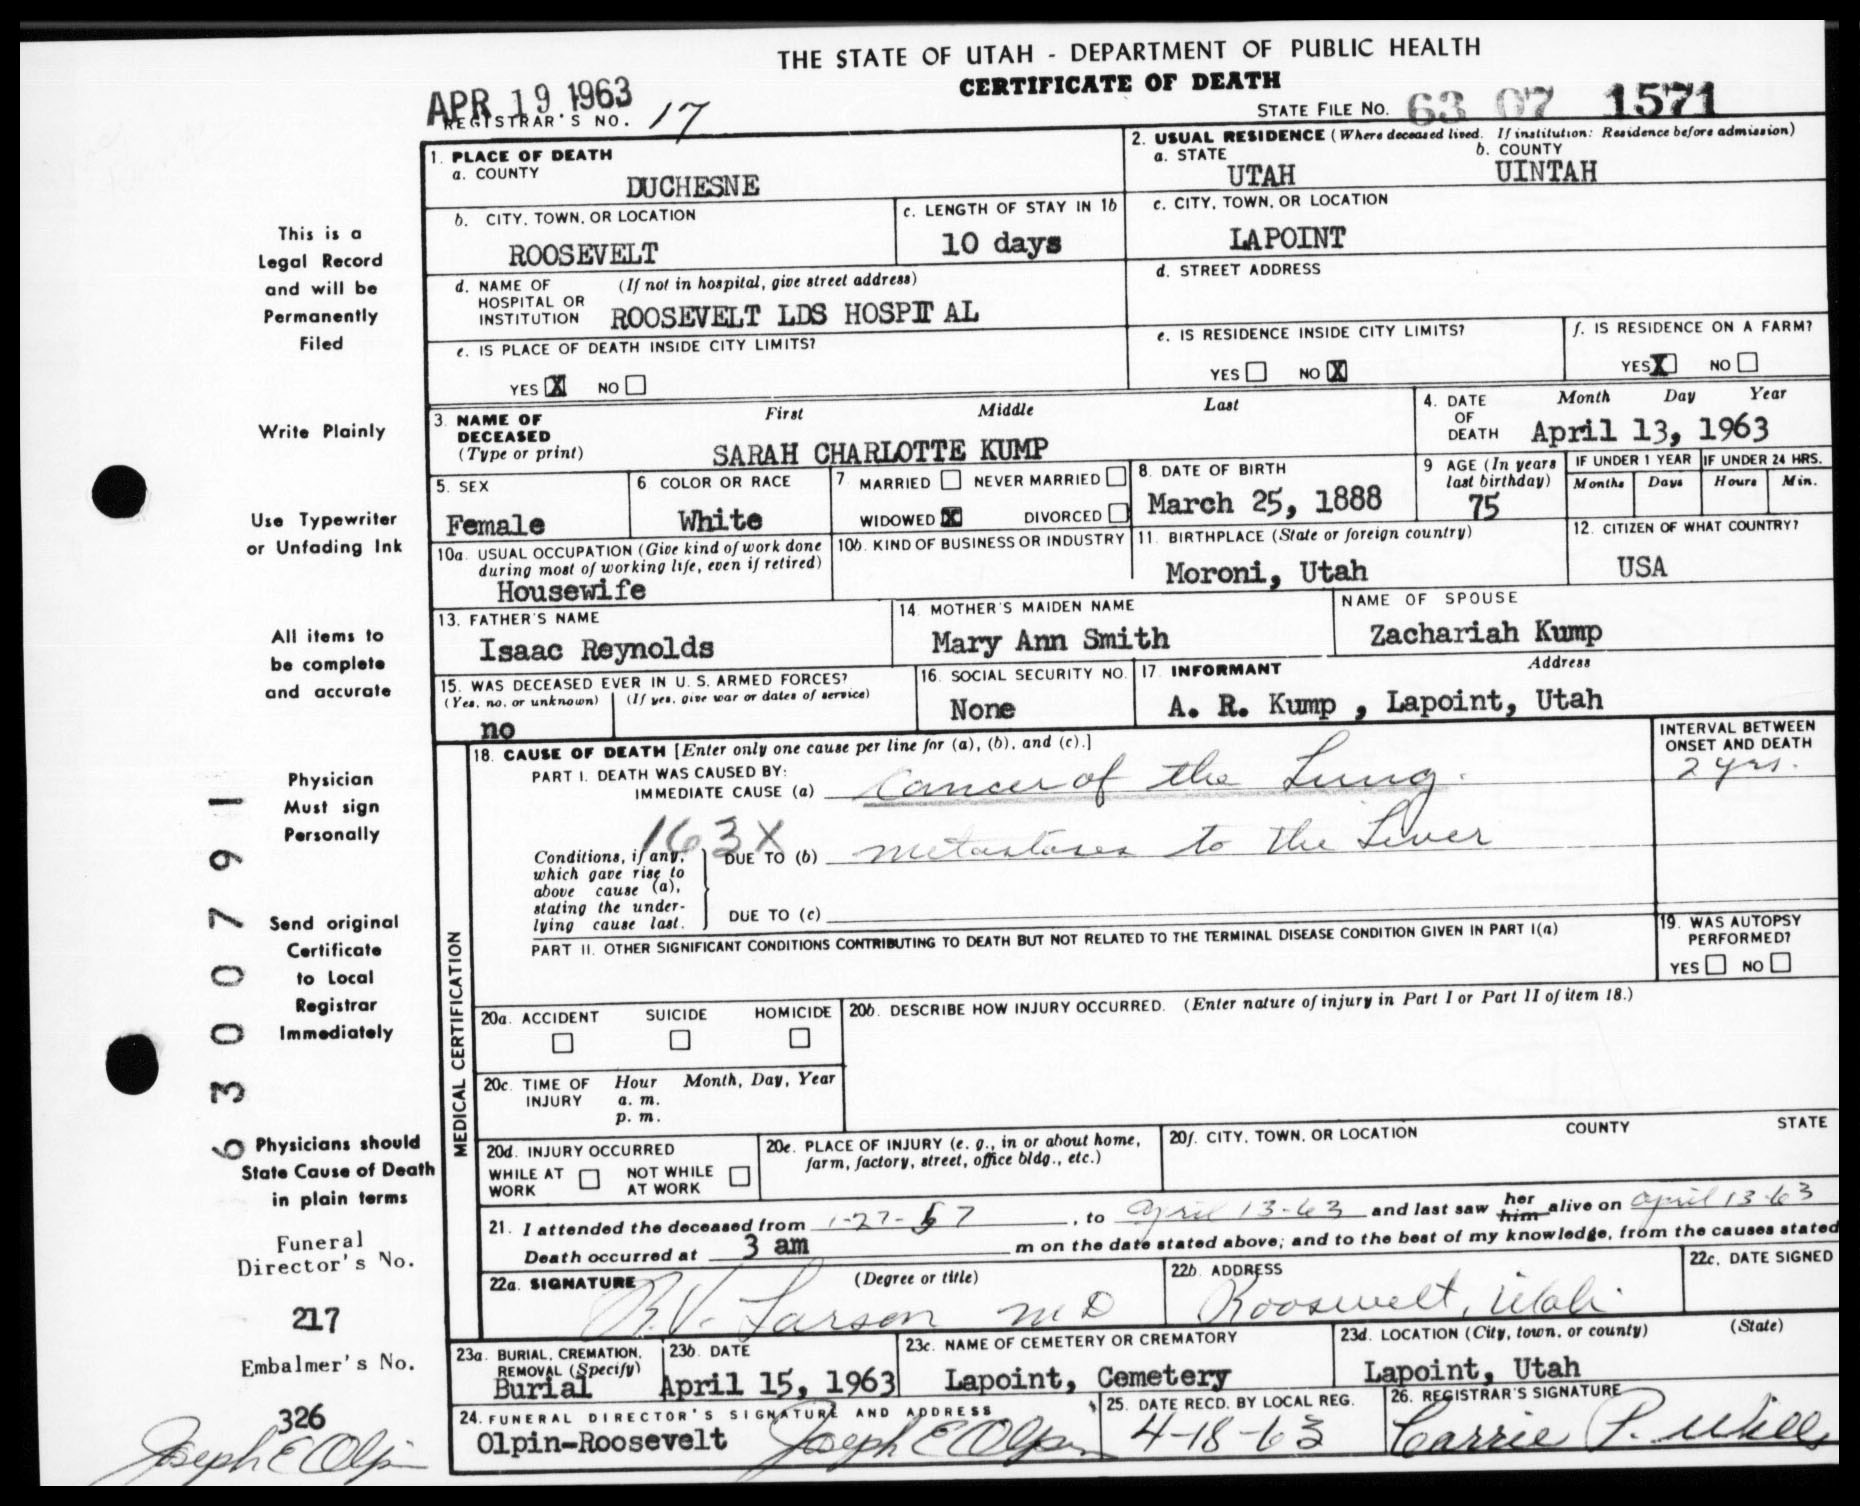 THE STATE OF UTAH - DEPARTMENT OF PUBLIC HEALTH
CERTIFICATE OF DEATH
APR 19 1963
REGISTRAR'S NO. 17
STATE FILE NO. 63 07 1571
1. PLACE OF DEATH
a. COUNTY
DUCHESNE
2. USUAL RESIDENCE (Where deceased lived. If institution: Residence before admission)
a. STATE
UTAH
b. COUNTY
UINTAH
b. CITY, TOWN, OR LOCATION
ROOSEVELT
c. LENGTH OF STAY IN 1b
10 days
c. CITY, TOWN, OR LOCATION
LAPOINT
d. NAME OF HOSPITAL OR INSTITUTION
(If not in hospital, give street address)
ROOSEVELT LDS HOSPITAL
d. STREET ADDRESS
e. IS PLACE OF DEATH INSIDE CITY LIMITS?
YES X NO
e. IS RESIDENCE INSIDE CITY LIMITS?
YES NO X
f. IS RESIDENCE ON A FARM?
YES X NO
3. NAME OF DECEASED
(Type or print)
First Middle Last
SARAH CHARLOTTE KUMP
4. DATE OF DEATH
Month Day Year
April 13, 1963
5. SEX
Female
6 COLOR OR RACE
White
7 MARRIED NEVER MARRIED
WIDOWED X DIVORCED
8. DATE OF BIRTH
March 25, 1888
9 AGE (In years last birthday)
75
IF UNDER 1 YEAR
Months Days
IF UNDER 24 HRS.
Hours Min.
10a. USUAL OCCUPATION (Give kind of work done during most of working life, even if retired)
Housewife
10b. KIND OF BUSINESS OR INDUSTRY
11. BIRTHPLACE (State or foreign country)
Moroni, Utah
12. CITIZEN OF WHAT COUNTRY?
USA
13. FATHER'S NAME
Isaac Reynolds
14. MOTHER'S MAIDEN NAME
Mary Ann Smith
NAME OF SPOUSE
Zachariah Kump
15. WAS DECEASED EVER IN U. S. ARMED FORCES?
(Yes, no, or unknown) (If yes, give war or dates of service)
no
16. SOCIAL SECURITY NO.
None
17. INFORMANT Address
A. R. Kump , Lapoint, Utah
MEDICAL CERTIFICATION
18. CAUSE OF DEATH [Enter only one cause per line for (a), (b), and (c).]
INTERVAL BETWEEN ONSET AND DEATH
PART I. DEATH WAS CAUSED BY:
IMMEDIATE CAUSE (a) Cancer of the Lung.
2 yrs.
163X
Conditions, if any, which gave rise to above cause (a), stating the underlying cause last.
DUE TO (b) metastases to the Liver
DUE TO (c)
PART II. OTHER SIGNIFICANT CONDITIONS CONTRIBUTING TO DEATH BUT NOT RELATED TO THE TERMINAL DISEASE CONDITION GIVEN IN PART I(a)
19. WAS AUTOPSY PERFORMED?
YES NO
20a. ACCIDENT SUICIDE HOMICIDE
20b. DESCRIBE HOW INJURY OCCURRED. (Enter nature of injury in Part I or Part II of item 18.)
20c. TIME OF INJURY
Hour Month, Day, Year
a. m.
p. m.
20d. INJURY OCCURRED
WHILE AT WORK
NOT WHILE AT WORK
20e. PLACE OF INJURY (e. g., in or about home, farm, factory, street, office bldg., etc.)
20f. CITY, TOWN, OR LOCATION COUNTY STATE
21. I attended the deceased from 1-27-57, to April 13-63 and last saw her him alive on April 13-63
Death occurred at 3 am m on the date stated above; and to the best of my knowledge, from the causes stated
22a. SIGNATURE (Degree or title)
R.V. Larson MD
22b. ADDRESS
Roosevelt, Utah.
22c. DATE SIGNED
23a. BURIAL, CREMATION, REMOVAL (Specify)
Burial
23b. DATE
April 15, 1963
23c. NAME OF CEMETERY OR CREMATORY
Lapoint, Cemetery
23d. LOCATION (City, town, or county) (State)
Lapoint, Utah
24. FUNERAL DIRECTOR'S SIGNATURE AND ADDRESS
Olpin-Roosevelt Joseph E Olpin
25. DATE RECD. BY LOCAL REG.
4-18-63
26. REGISTRAR'S SIGNATURE
Carrie P.
This is a
Legal Record
and will be
Permanently
Filed
Write Plainly
Use Typewriter
or Unfading Ink
All items to
be complete
and accurate
Physician
Must sign
Personally
Send original
Certificate
to Local
Registrar
Immediately
Physicians should
State Cause of Death
in plain terms
Funeral
Director's No.
217
Embalmer's No.
326
Joseph E Olpin
6300791